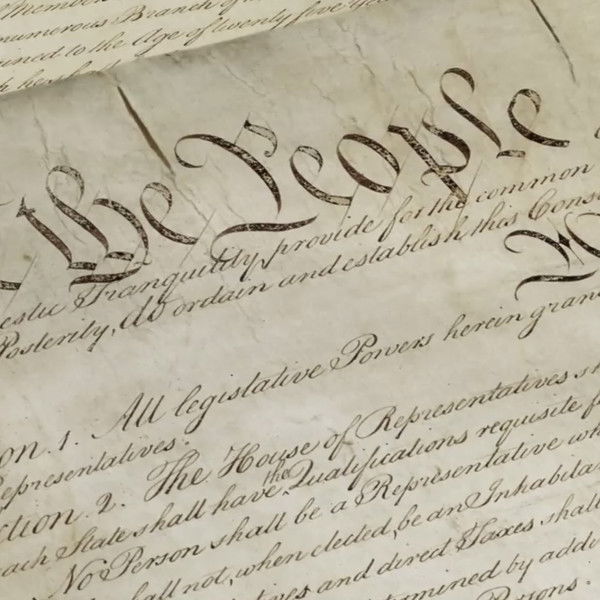 numerous Branch of
to the Age of twenty five
the People
Tranquility, provide for the common
Posterity, do ordain and establish this
All legislative Powers herein
Representatives.
2. The House of Representatives
each State shall have the Qualifications requisite
No Person shall be a Representative
shall not, when elected, be an
and direct Taxes
by
Persons.